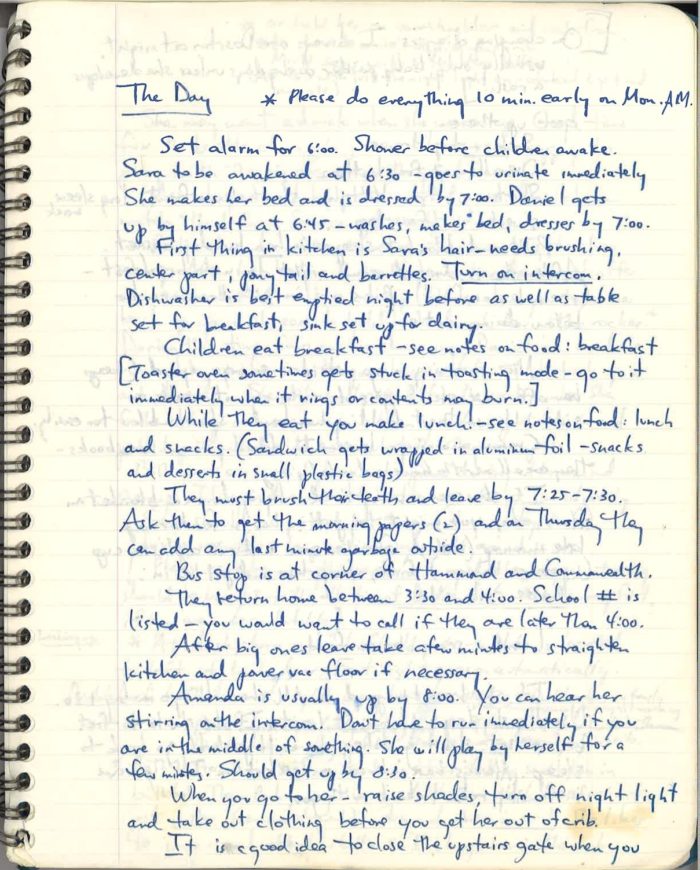 The Day * Please do everything 10 min. early on Mon. A.M.
Set alarm for 6:00. Shower before children awake.
Sara to be awakened at 6:30 - goes to urinate immediately
She makes her bed and is dressed by 7:00. Daniel gets
up by himself at 6:45 - washes, makes "bed, dresses by 7:00.
First thing in kitchen is Sara's hair - needs brushing,
center part, pony tail and barrettes. Turn on intercom.
Dishwasher is best emptied night before as well as table
set for breakfast, sink set up for dairy.
Children eat breakfast - see notes on food: breakfast
[Toaster oven sometimes gets stuck in toasting mode - go to it
immediately when it rings or contents may burn.]
While they eat you make lunch. - see notes on food: lunch
and snacks. (Sandwich gets wrapped in aluminum foil - snacks
and desserts in small plastic bags)
They must brush their teeth and leave by 7:25-7:30.
Ask them to get the morning papers (2) and on Thursday they
can add any last minute garbage outside.
Bus stop is at corner of Hammond and Commonwealth.
They return home between 3:30 and 4:00. School # is
listed - you would want to call if they are later than 4:00.
After big ones leave take a few minutes to straighten
kitchen and power vac floor if necessary.
Amanda is usually up by 8:00. You can hear her
stirring on the intercom. Don't have to run immediately if you
are in the middle of something. She will play by herself for a
few minutes. Should get up by 8:30.
When you go to her - raise shades, turn off night light
and take out clothing before you get her out of crib.
It is a good idea to close the upstairs gate when you